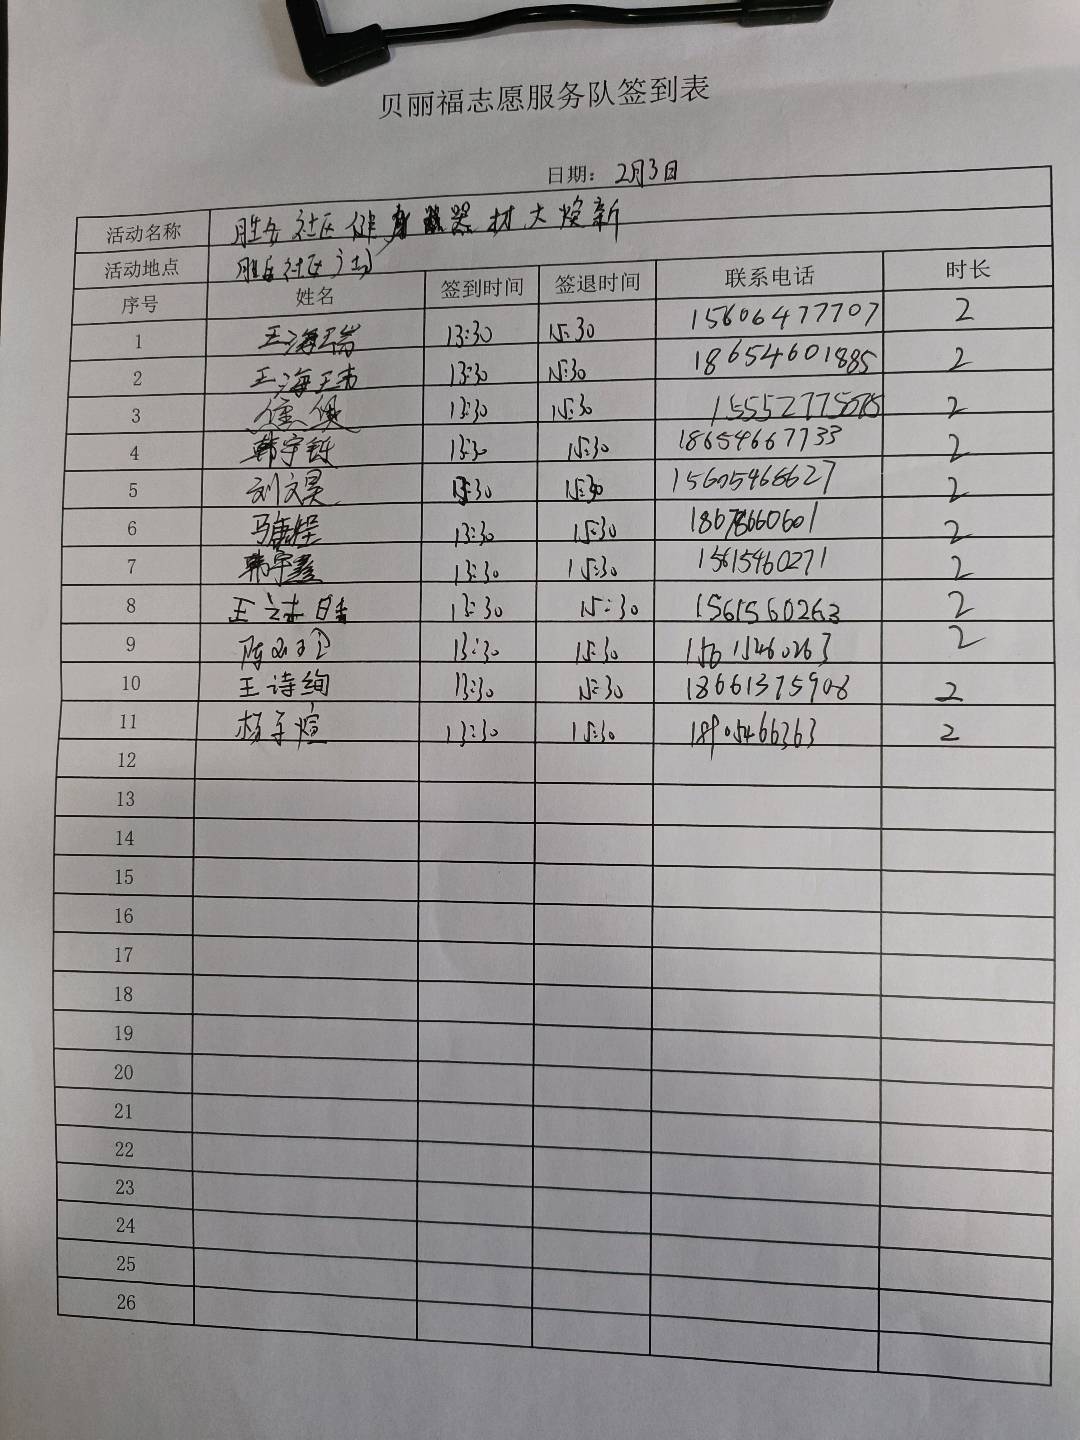 贝丽福志愿服务队签到表
日期: 2月3日
活动名称 胜安社区健身器材大焕新
活动地点 社区
序号 姓名 签到时间 签退时间 联系电话 时长
1 王海瑞 13:30 15:30 15606477707 2
2 王海玮 13:30 15:30 18654601885 2
3 13:30 15:30 2
4 韩宇轩 13:30 15:30 18654667733 2
5 刘文昊 13:30 15:30 15605466627 2
6 马康程 13:30 15:30 18678660601 2
7 韩宇鑫 13:30 15:30 15615460271 2
8 王 13:30 15:30 1561560263 2
9 陈 13:30 15:30 15615460263 2
10 王诗绚 13:30 15:30 18661375908 2
11 杨子煊 13:30 15:30 18905466363 2
12
13
14
15
16
17
18
19
20
21
22
23
24
25
26